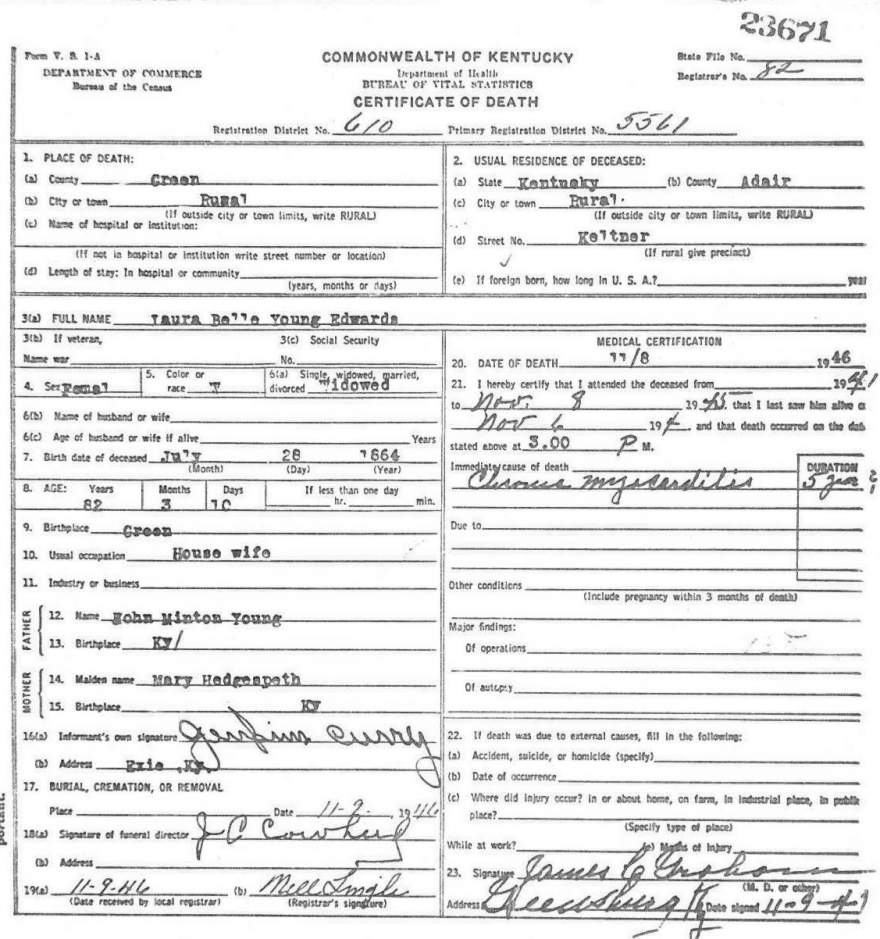 23671
Form V. S. 1-A
DEPARTMENT OF COMMERCE
Bureau of the Census
COMMONWEALTH OF KENTUCKY
Department of Health
BUREAU OF VITAL STATISTICS
CERTIFICATE OF DEATH
State File No.
Registrar's No. 82
Registration District No. 610 Primary Registration District No. 5561
1. PLACE OF DEATH:
(a) County Green
(b) City or town Rural
(If outside city or town limits, write RURAL)
(c) Name of hospital or institution:
(If not in hospital or institution write street number or location)
(d) Length of stay: In hospital or community
(years, months or days)
2. USUAL RESIDENCE OF DECEASED:
(a) State Kentucky (b) County Adair
(c) City or town Rural.
(If outside city or town limits, write RURAL)
(d) Street No. Keltner
(If rural give precinct)
(e) If foreign born, how long in U. S. A.? year
3(a) FULL NAME Laura Belle Young Edwards
3(b) If veteran, 3(c) Social Security
Name war No.
4. Sex Femal 5. Color or race W 6(a) Single, widowed, married, divorced Widowed
6(b) Name of husband or wife
6(c) Age of husband or wife if alive Years
7. Birth date of deceased July 28 1864
(Month) (Day) (Year)
8. AGE: Years Months Days If less than one day
82 3 10 hr. min.
9. Birthplace Green
10. Usual occupation House wife
11. Industry or business
FATHER
12. Name Hohn Minton Young
13. Birthplace Ky/
MOTHER
14. Maiden name Mary Hedgespeth
15. Birthplace KY
16(a) Informant's own signature Curry
(b) Address Exie ,Ky.
17. BURIAL, CREMATION, OR REMOVAL
Place Date 11-9- 1946
18(a) Signature of funeral director J C
(b) Address
19(a) 11-9-46 (b)
(Date received by local registrar) (Registrar's signature)
MEDICAL CERTIFICATION
20. DATE OF DEATH 11/8 1946
21. I hereby certify that I attended the deceased from 19
to Nov. 8 19 that I last saw him alive o
Nov 6 19 and that death occurred on the dat
stated above at 3.00 P M.
Immediate cause of death DURATION
Chronic myocarditis 5 years
Due to
Other conditions
(Include pregnancy within 3 months of death)
Major findings:
Of operations
Of autopsy
22. If death was due to external causes, fill in the following:
(a) Accident, suicide, or homicide (specify)
(b) Date of occurrence
(c) Where did injury occur? In or about home, on farm, in industrial place, in public
place?
(Specify type of place)
While at work? (e) Means of injury
23. Signature James C Graham
(M. D. or other)
Address Greensburg Ky Date signed 11-9-4
portant.